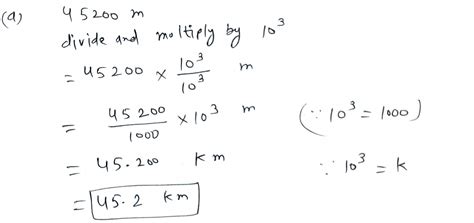 (a) 45200 m
divide and multiply by 10³
= 45200 × 10³/10³ m
= 45200/1000 × 10³ m (∵ 10³ = 1000)
= 45.200 km ∵ 10³ = k
= 45.2 km